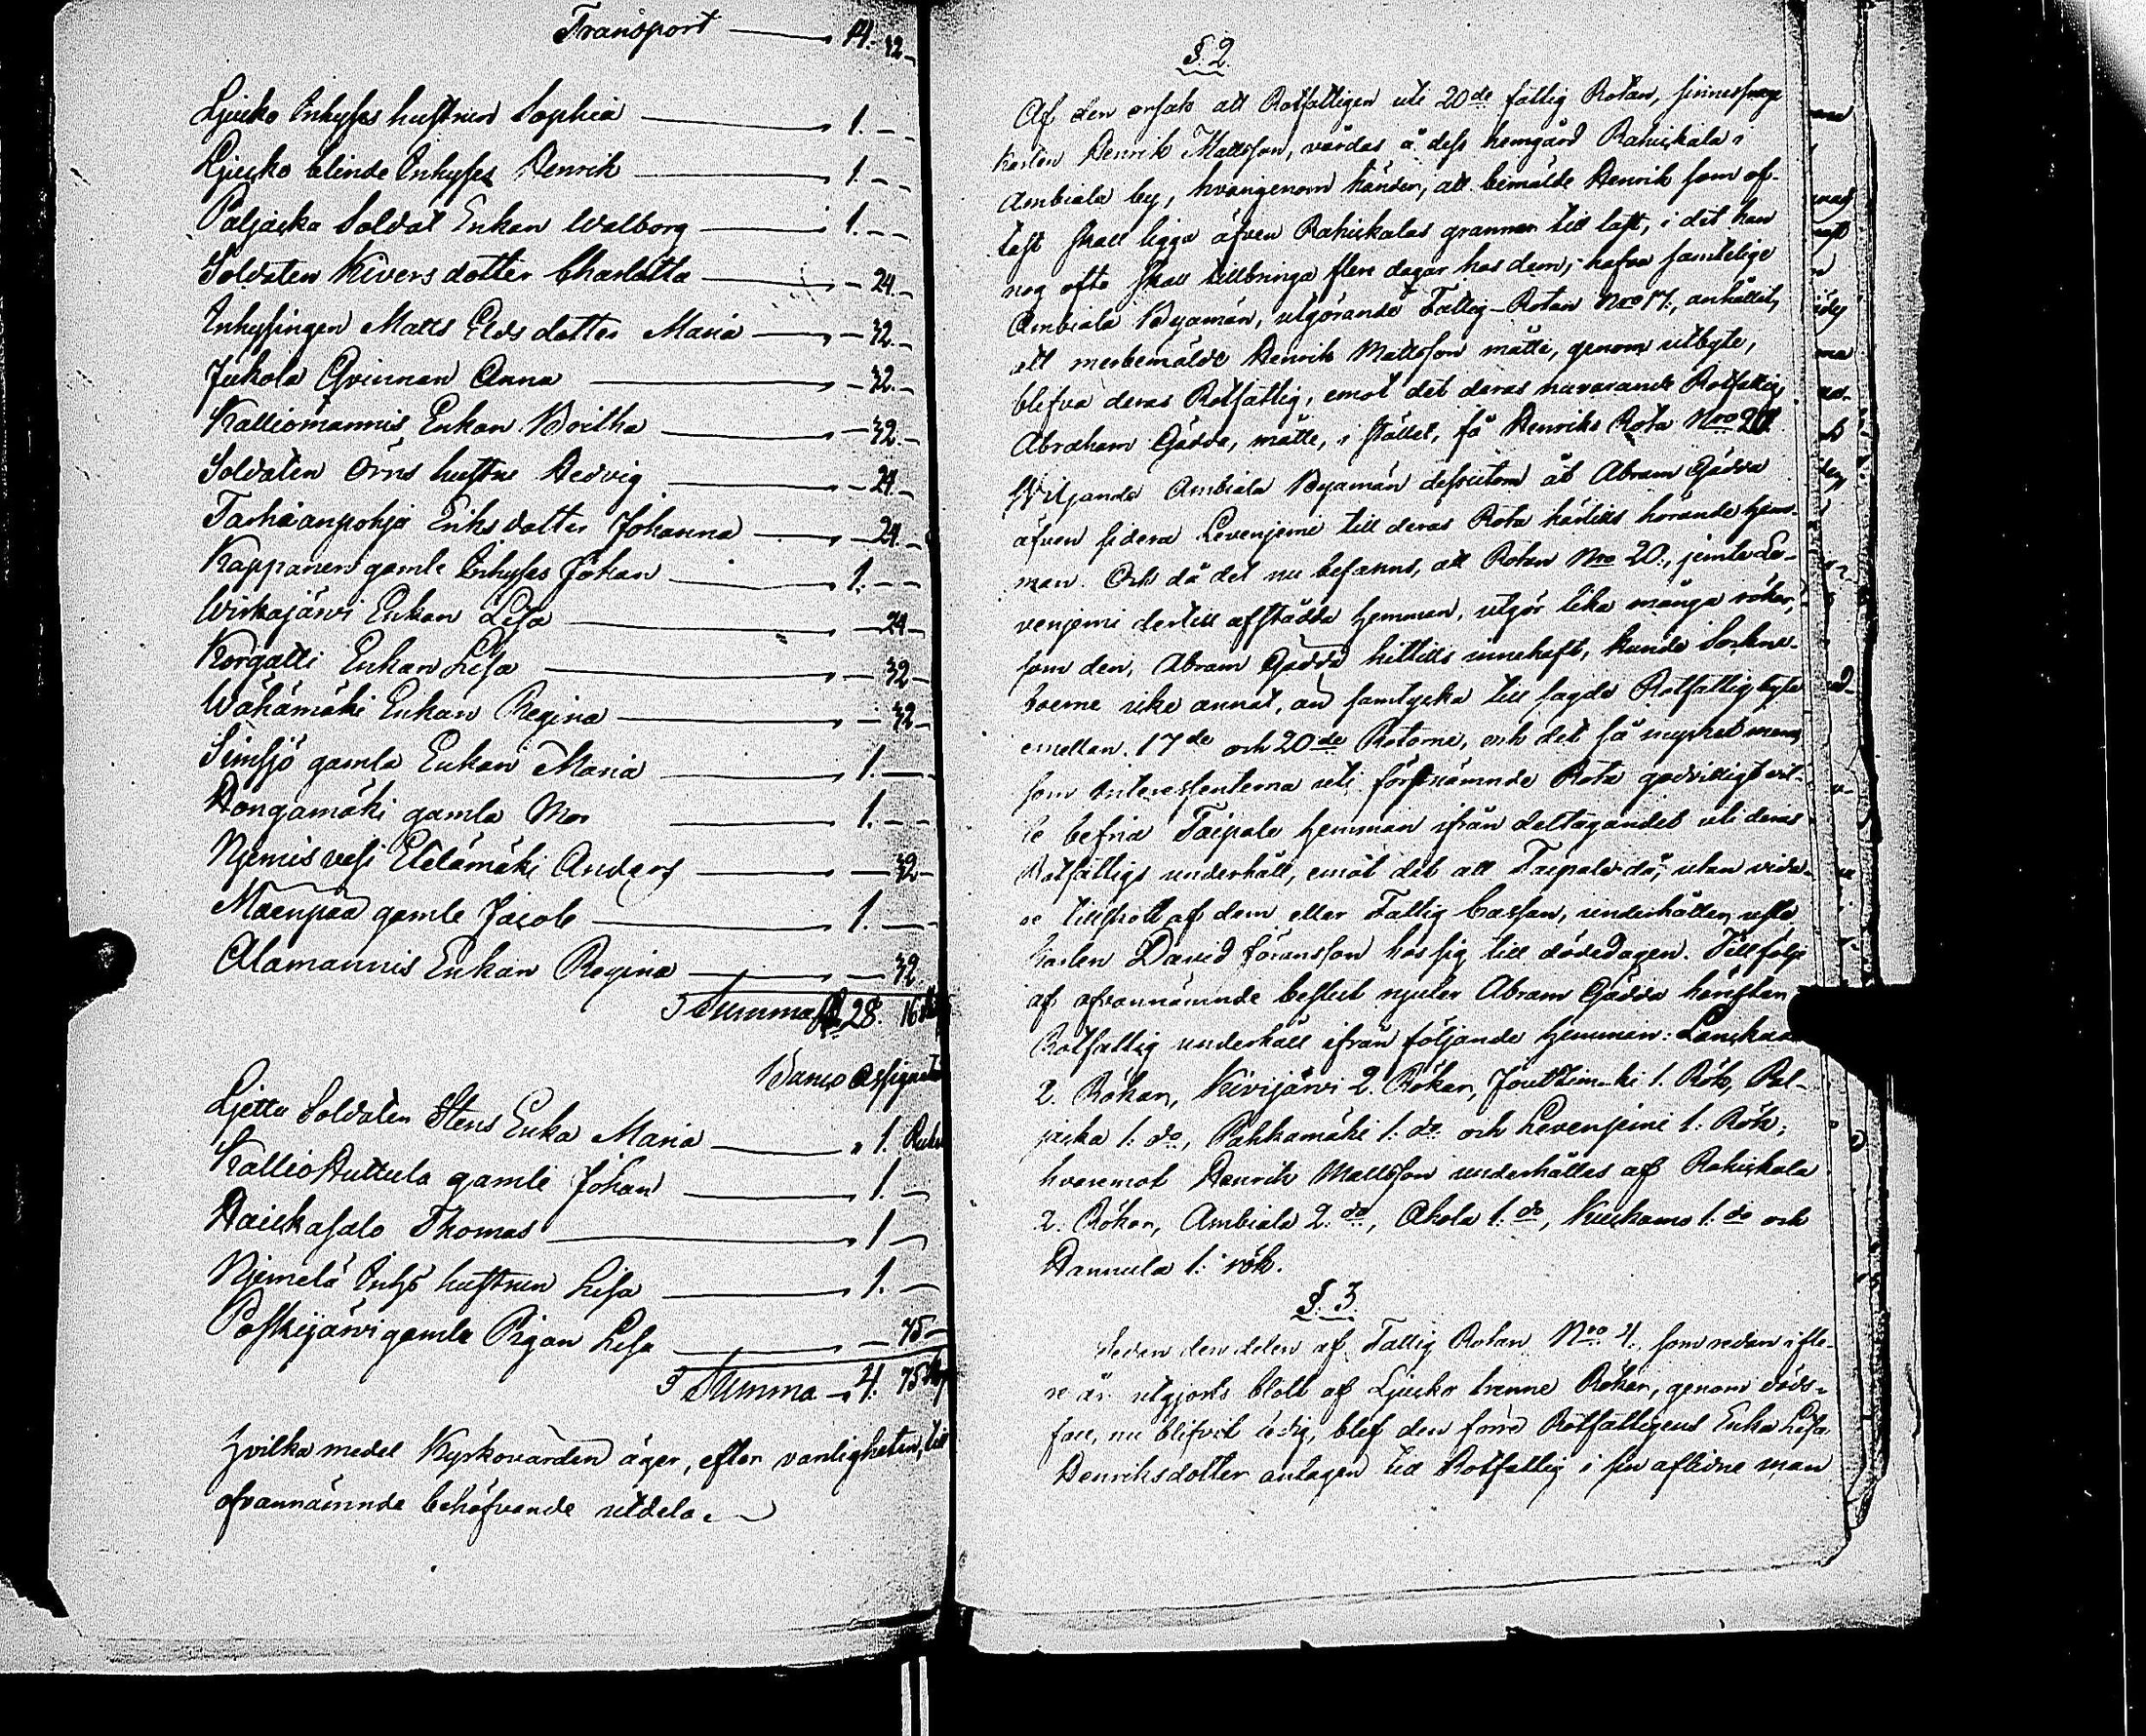 Transport — 14. 32.
Ljucko Inhyses hustrun Sophia — 1. — —
Ljucko blinde Inhyses Henrik — 1. — —
Paljacka Soldat Enkan Walborg — 1. — —
Soldaten Kivers dotter Charlotta — 24. —
Inhysingen Matts Elds dotter Maria — 32. —
Jukola Qvinnan Anna — 32. —
Kalliomannis Enkan Britha — 32. —
Soldaten Örns hustru Hedvig — 24. —
Tarhaanpohja Eriks dotter Johanna — 24. —
Kappanen gamle Inhyses Johan — 1. — —
Wirkajärvi Enkan Lisa — 24 —
Korgatti Enkan Lisa — 32 —
Wähämäki Enkan Regina — 32 —
Simsjö gamla Enkan Maria — 1. —
Hongamäki gamla Mor — 1. — —
Njemisvesi Etelämäki Anders — 32 —
Mäenpää gamle Jacob — 1. —
Alamannis Enkan Regina — 32
Summa 28. 16
Banco Assignat
Ljettu Soldaten Stens Enka Maria — " 1. Rub
Kallio Huttula gamle Johan — 1. —
Hauckasalo Thomas — 1 —
Njemelä Inhs hustrun Lisa — 1. —
Poskijärvi gamla Pigan Lisa — 75 —
Summa — 4. 75
Hvilka medel Kyrkovärden äger, efter vanligheten, till
ofvannämnde behöfvande utdela.
§. 2.
Af den orsak att Rotfattigen uti 20de fattig Rotan, sinnessvage
karlen Henrik Mattsson, vårdas å dess hemgård Rahickala i
Ambiala by, hvarigenom händer, att bemälde Henrik som of-
tast skall ligga äfven Rahickalas grannar till last, i det han
nog ofta skall tillbringa flere dagar hos dem; hafva samtelige
Ambiala Byamän, utgörande Fattig-Rotan Nro 17, anhållit,
att merbemälde Henrik Mattsson måtte, genom utbyte,
blifva deras Rotfattig, emot det deras nuvarande Rotfattig,
Abraham Gädda, måtte, i stället, få Henriks Rota Nro 20.
Viljande Ambiala Byamän dessutom åt Abram Gädda
äfven Levenjemi till deras Rota härtills hörande hem-
man. Och då det nu befanns, att Rotan Nro 20, jemte Le-
venjemi dertill afstådda hemman, utgör lika många rökar,
som den, Abram Gädda hittills innehaft, kunde Sockne-
boerne icke annat, än samtycka till sagde Rotfattig byte
emellan 17de och 20de Rotorne, och det så mycket mera,
som Interessenterna uti förstnämnde Rota godvilligt vil-
le befria Taipale hemman ifrån deltagandet uti deras
Rotfattigs underhåll, emot det att Taipale då, utan vida-
re tillskott af dem eller Fattig Cassan, underhåller usle
karlen David Göransson hos sig till dödedagen. Till följe
af ofvannämnde beslut njuter Abram Gädda härefter
Rotfattig underhåll ifrån följande hemman:
2. Rökar, Kivijärvi 2. Rökar, 1. Rök, Pal-
jacka 1. do, Pahkamäki 1. do och Levenjemi 1. Rök;
hvaremot Henrik Mattsson underhålles af Rahickala
2. Rökar, Ambiala 2. do, Ahola 1. do, 1. do och
Hannula 1. rök.
§. 3.
Sedan den delen af Fattig Rotan Nro 4, som redan i fle-
re år utgjorts blott af Ljucko trenne Rökar, genom döds-
fall, nu blifvit ledig, blef den förra Rotfattigens Enka Lisa
Henriksdotter antagen till Rotfattig i sin aflidne man